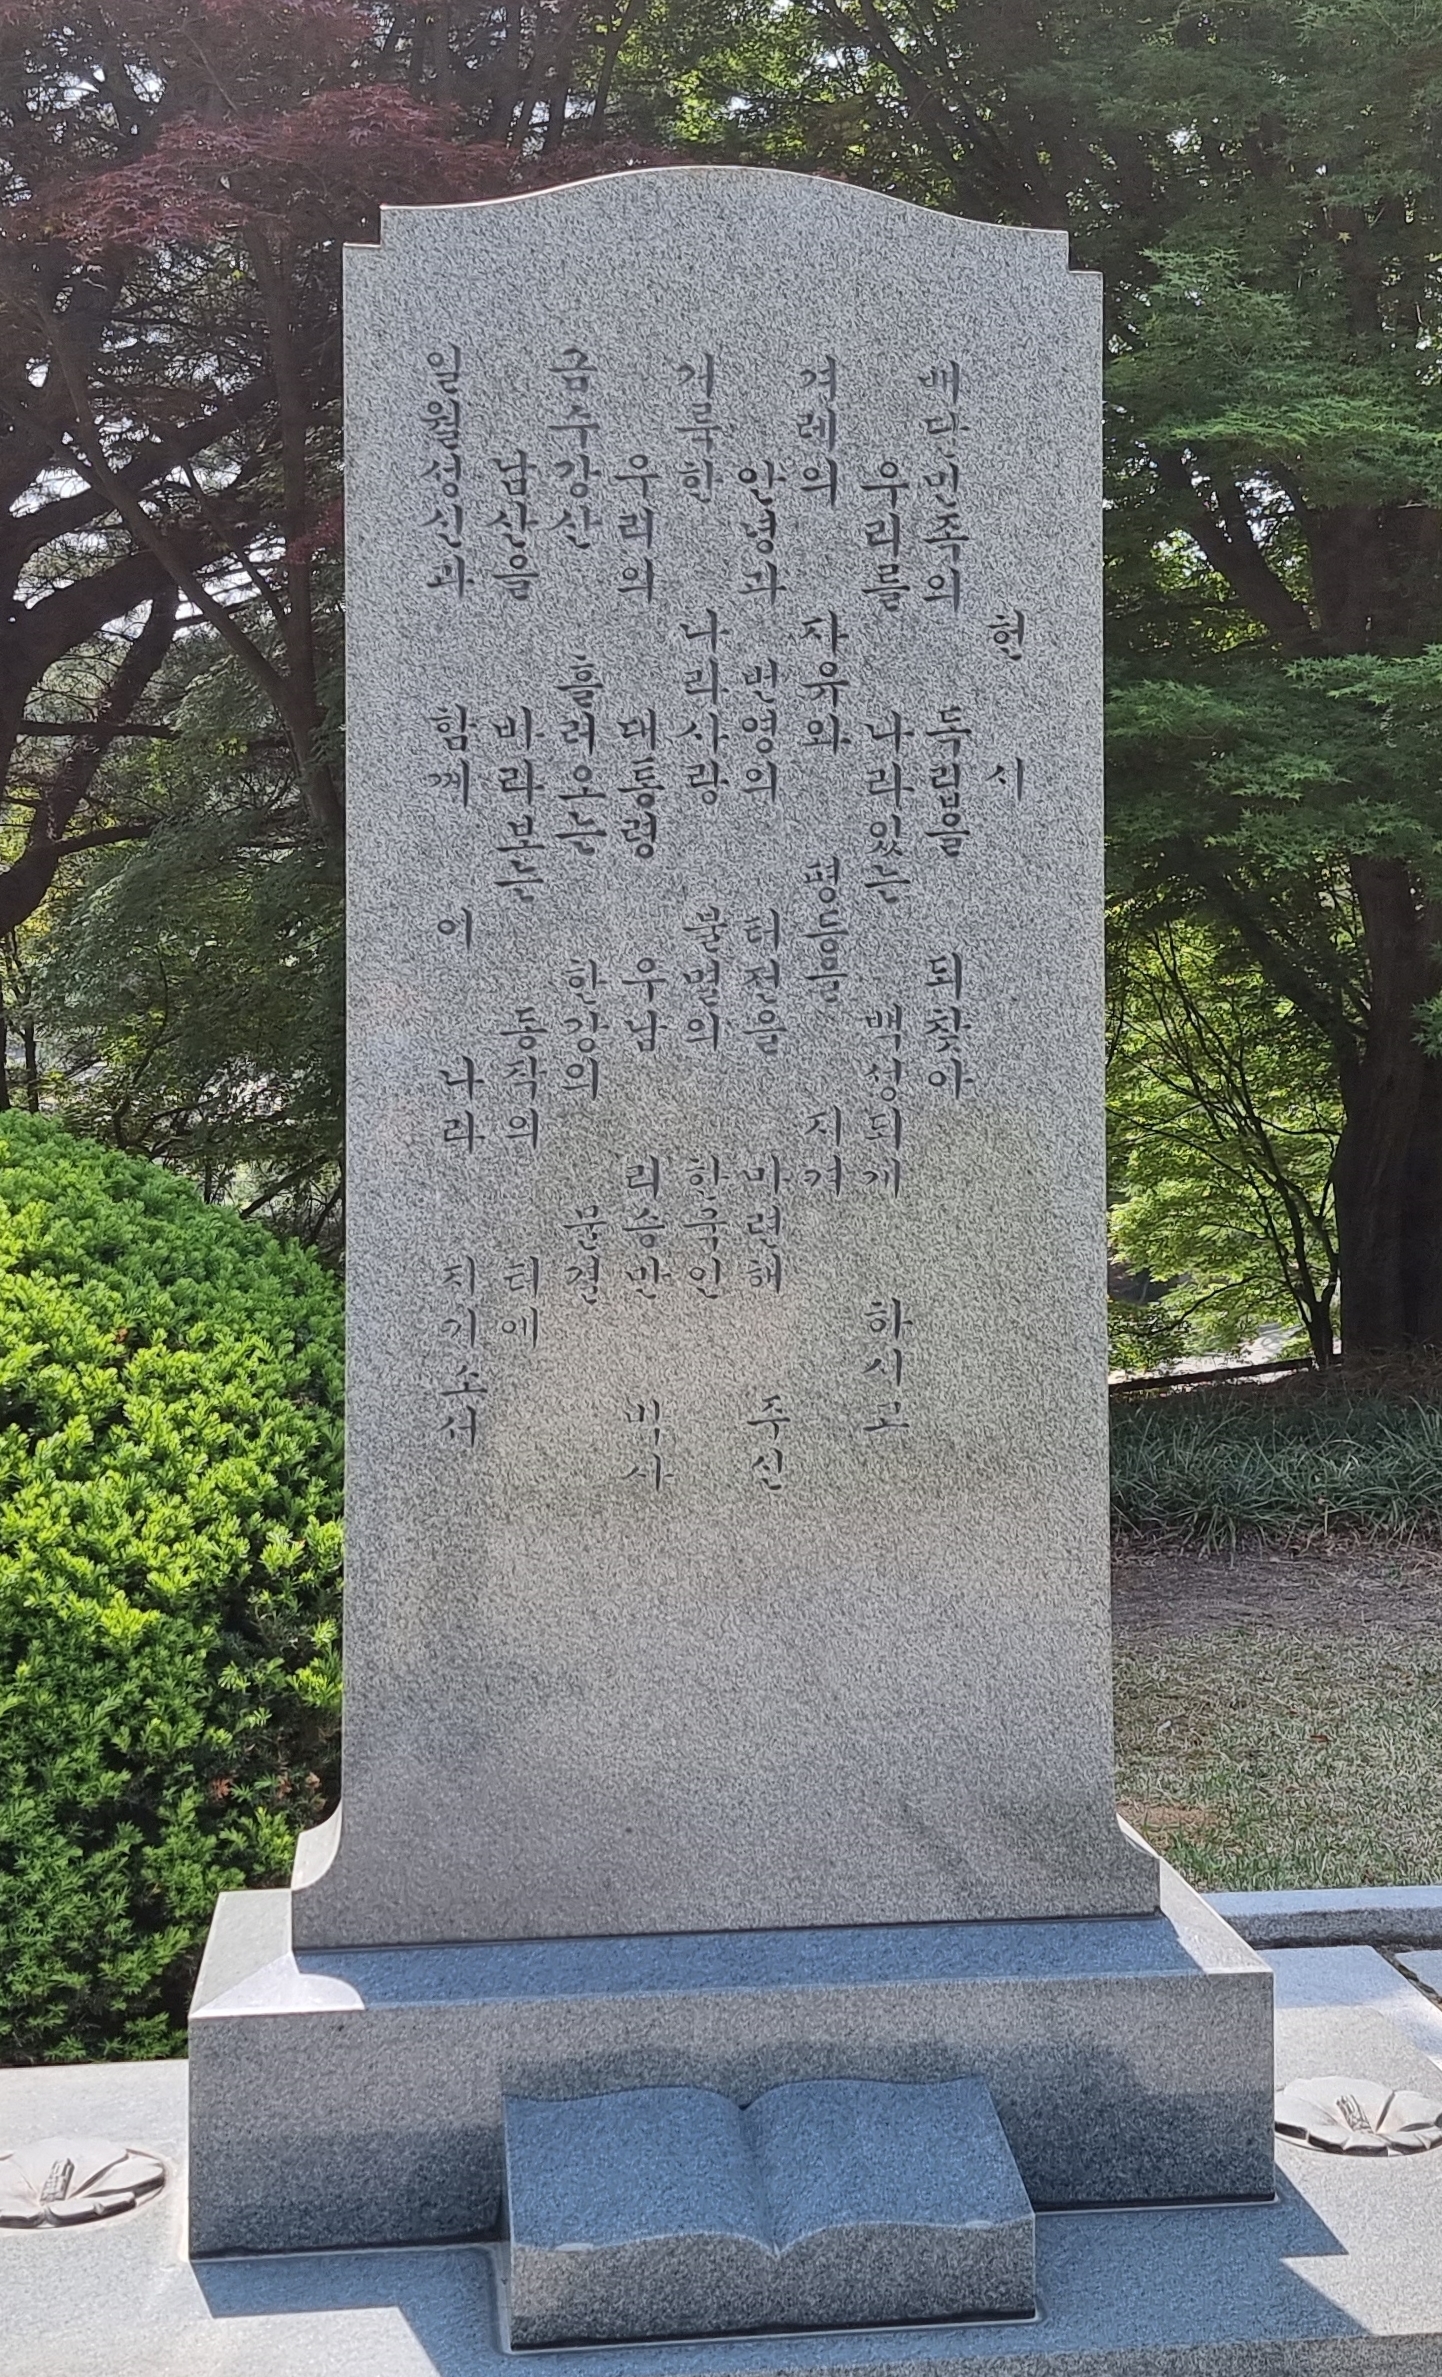 헌 시
배달민족의 독립을 되찾아
우리를 나라있는 백성되게 하시고
겨레의 자유와 평등을 지켜
안녕과 번영의 터전을 마련해 주신
거룩한 나라사랑 불멸의 한국인
우리의 대통령 우남 리승만 박사
금수강산 흘러오는 한강의 물결
남산을 바라보는 동작의 터에
일월성신과 함께 이 나라 지키소서